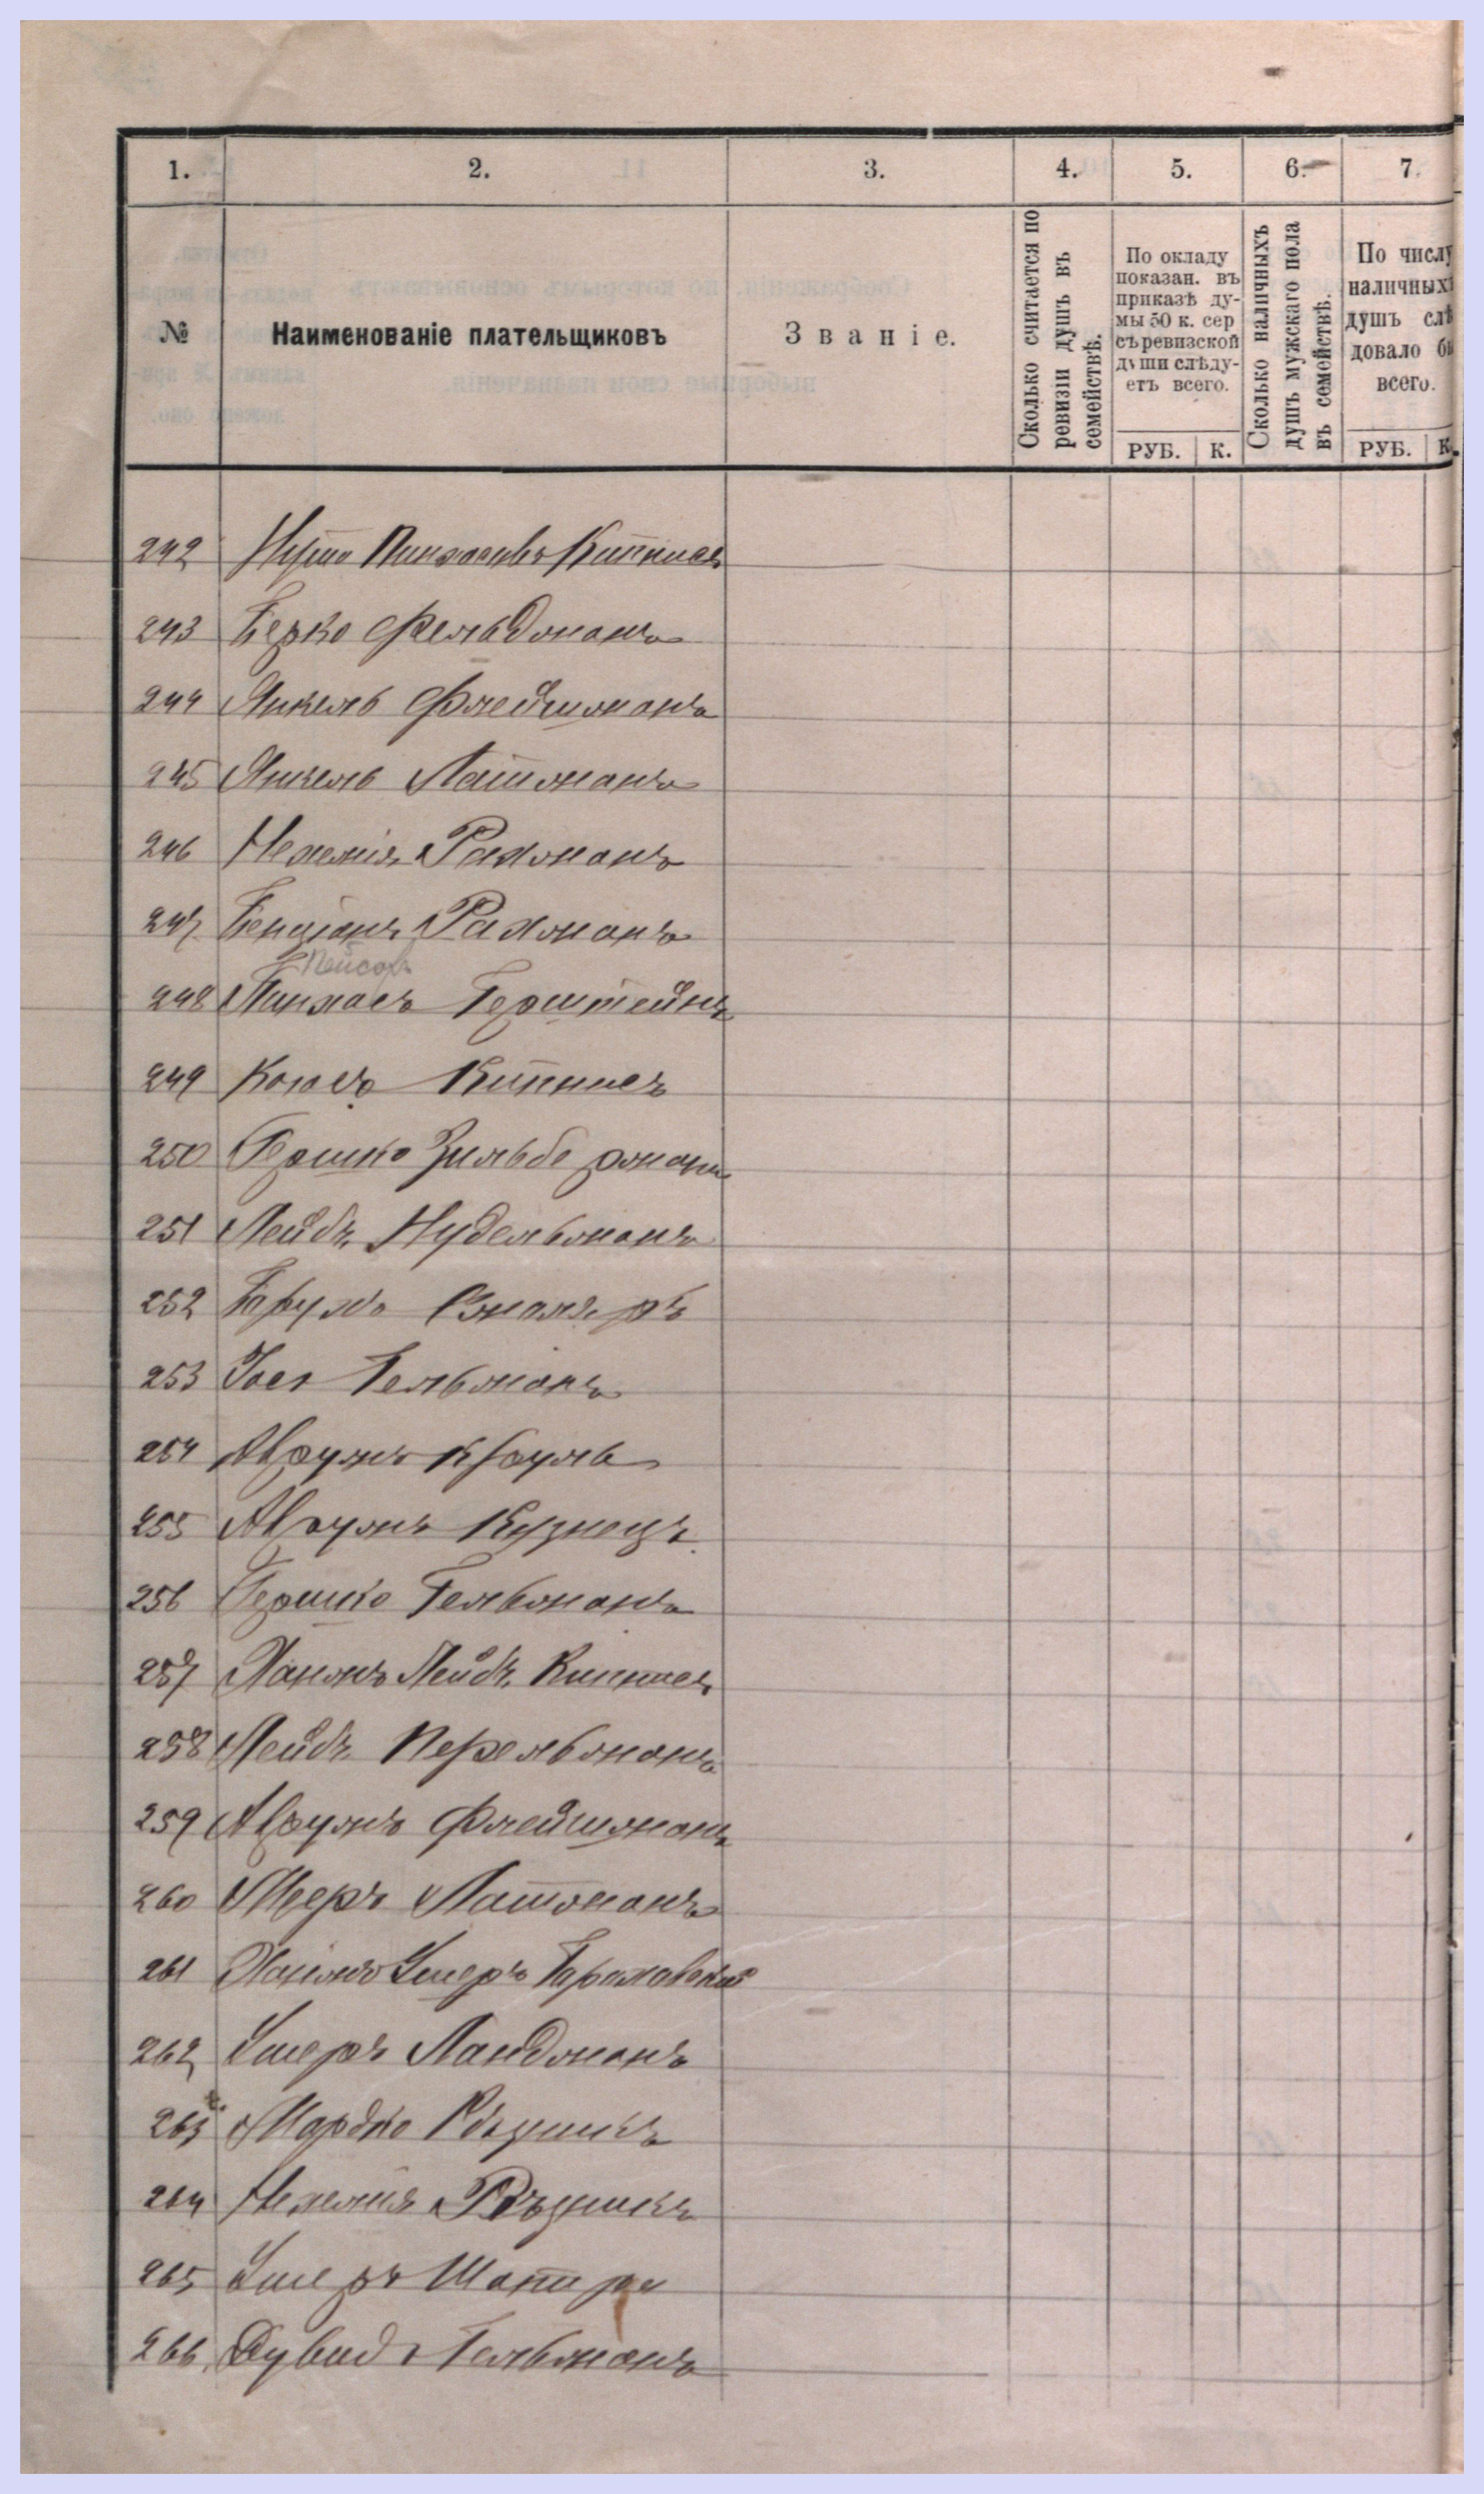 1. 2. 3. 4. 5. 6. 7.
№
Наименованіе плательщиковъ
Званіе.
Сколько считается по
ревизіи душъ въ
семействѣ.
По окладу
показан. въ
приказѣ ду-
мы 50 к. сер
съ ревизской
души слѣду-
етъ всего.
РУБ. К.
Сколько наличныхъ
душъ мужскаго пола
въ семействѣ.
По числу
наличныхъ
душъ слѣ
довало бы
всего.
РУБ. К.
242 Нута Пинхасовъ Кипнисъ
243 Берко Фельдманъ
244 Янкель Флейшманъ
245 Янкель Латманъ
246 Нехемія Рахманъ
247 Бенціонъ Рахманъ
Пейсахъ
248 Пинхасъ Герштейнъ
249 Кипнисъ
250 Гершко Зильберманъ
251 Лейбъ Нудельманъ
252 Барухъ Смоляръ
253 Іосъ Гельманъ
254 Аврумъ Кроуль
255 Аврумъ Кузнецъ
256 Гершко Гельманъ
257 Хаимъ Лейбъ Кипнисъ
258 Лейбъ Перельманъ
259 Аврумъ Флейшманъ
260 Мееръ Латманъ
261 Хаимъ Ушеръ Барановскій
262 Ушеръ Ландманъ
263 Мордко Рѣзникъ
264 Нехемія Рѣзникъ
265 Ушеръ Шапира
266 Дувидъ Гельманъ